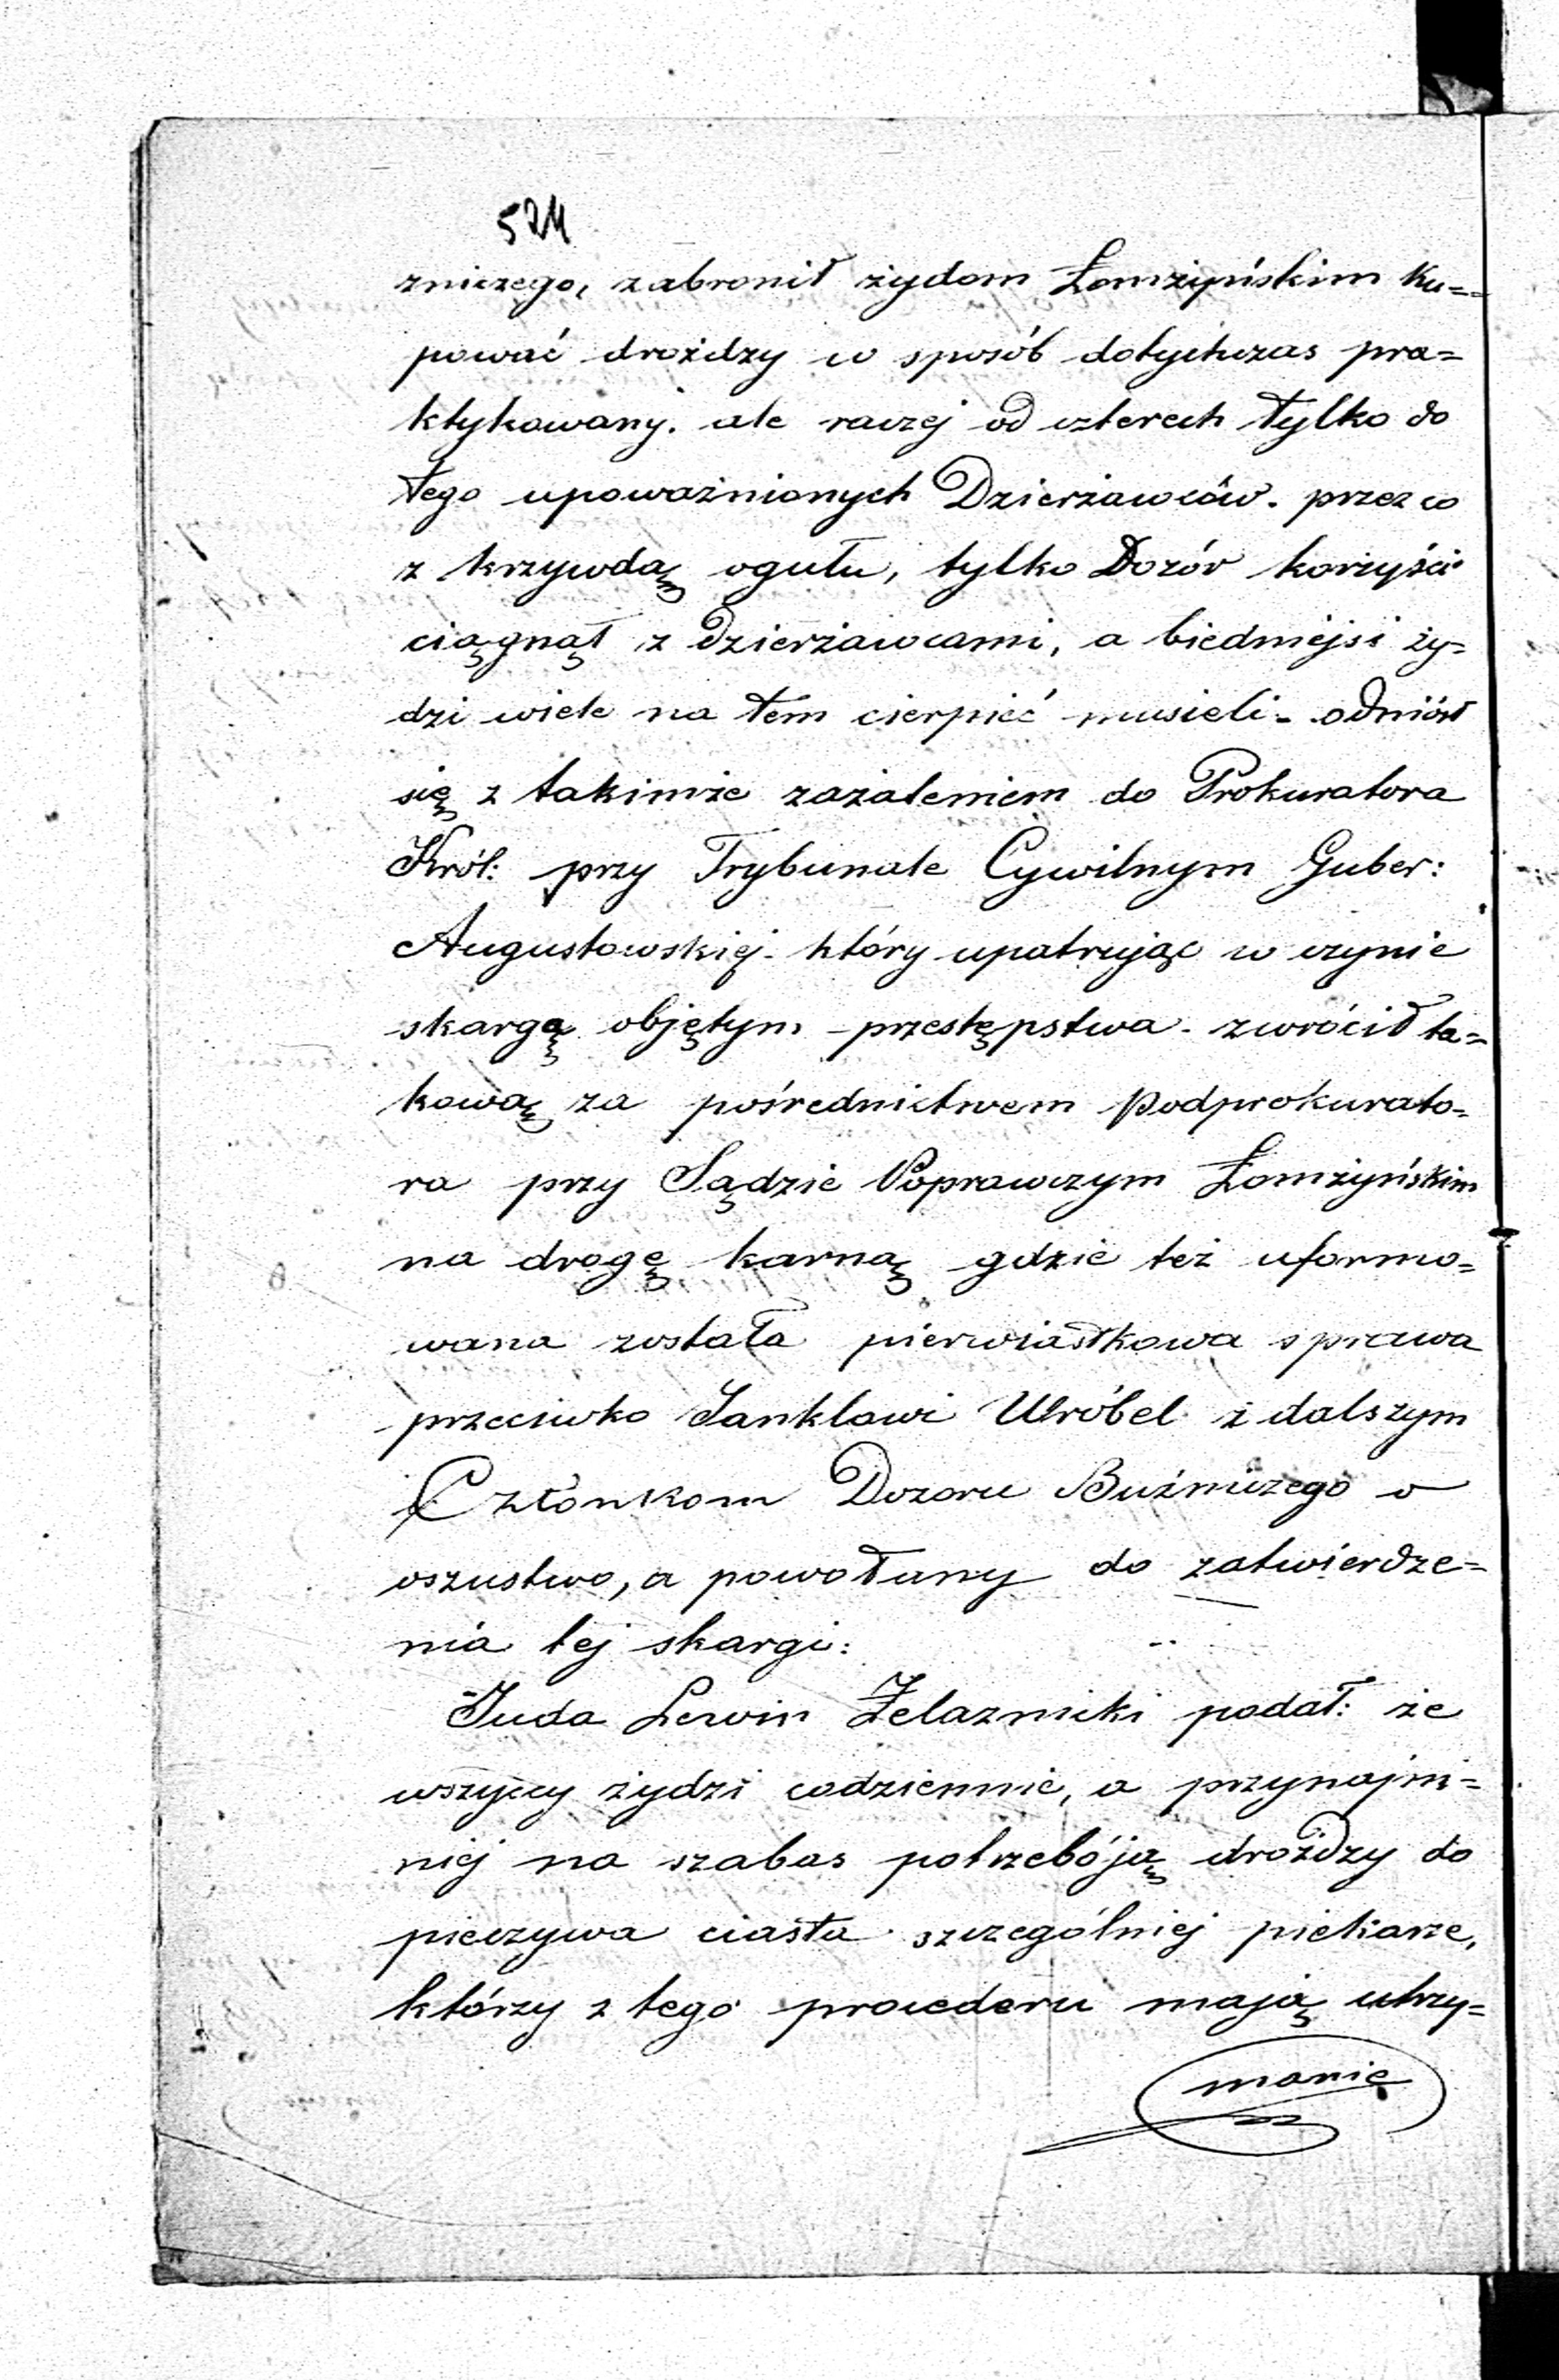 524
zniczego, zabronił żydom Łomżyńskim ku=
pować drożdzy w sposób dotychczas pra=
ktykowany. ale raczej od czterech tylko do
tego upoważnionych Dzierżawców. przez co
z krzywdą ogułu, tylko Dozór korzyści
ciągnął z dzierżawcami, a biedniejsi ży=
dzi wiele na tem cierpieć musieli - odniósł
się z takimże zażaleniem do Prokuratora
Król: przy Trybunale Cywilnym Guber:
Augustowskiej - który upatrując w czynie
skargą objętym - przestępstwa - zwrócił ta=
kową za pośrednictwem Podprokurato=
ra przy Sądzie Poprawczym Łomżyńskim
na drogę karną gdzie też uformo=
wana została pierwiastkowa sprawa
przeciwko Janklowi Wróbel i dalszym
Członkom Dozoru Bużniczego o
oszustwo, a powołany do zatwierdze=
nia tej skargi:
Juda Lewin Żelaznicki podał: że
wszyscy żydzi codziennie, a przynajm=
niej na szabas potrzebóją drożdzy do
pieczywa ciasta szczególniej piekarze,
którzy z tego procederu mają utrzy=
manie